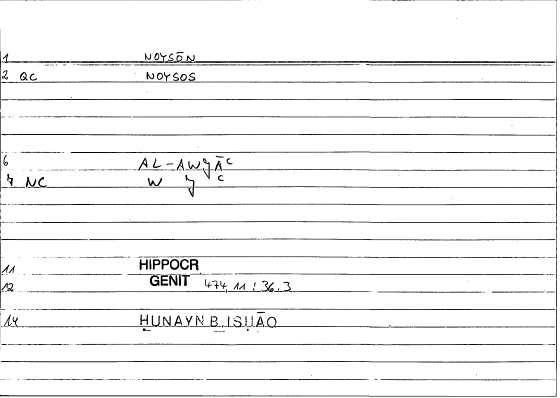 1 NOYSŌN
2 QC NOYSOS
6 AL-AWǧĀᶜ
7 NC W ǧ ᶜ
11 HIPPOCR
12 GENIT 474,11 : 36.3
14 ḤUNAYN B. ISḤĀQ